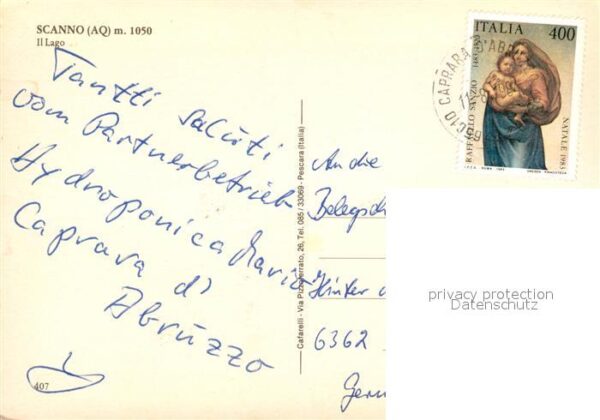 SCANNO (AQ) m. 1050
Il Lago
Tantti saluti
vom Partnerbetrieb
Hydroponica Mario
Caprara d'
Abruzzo
407
Cafarelli - Via Pizzoferrato, 26, Tel. 085/33069 - Pescara (Italia)
An die
Belegsch
Hinter
6362
Germ
ITALIA 400
RAFFAELLO SANZIO 1483-1520
NATALE 1983
I.P.Z.S. ROMA 1983
65010 CAPRARA D'ABR
privacy protection
Datenschutz